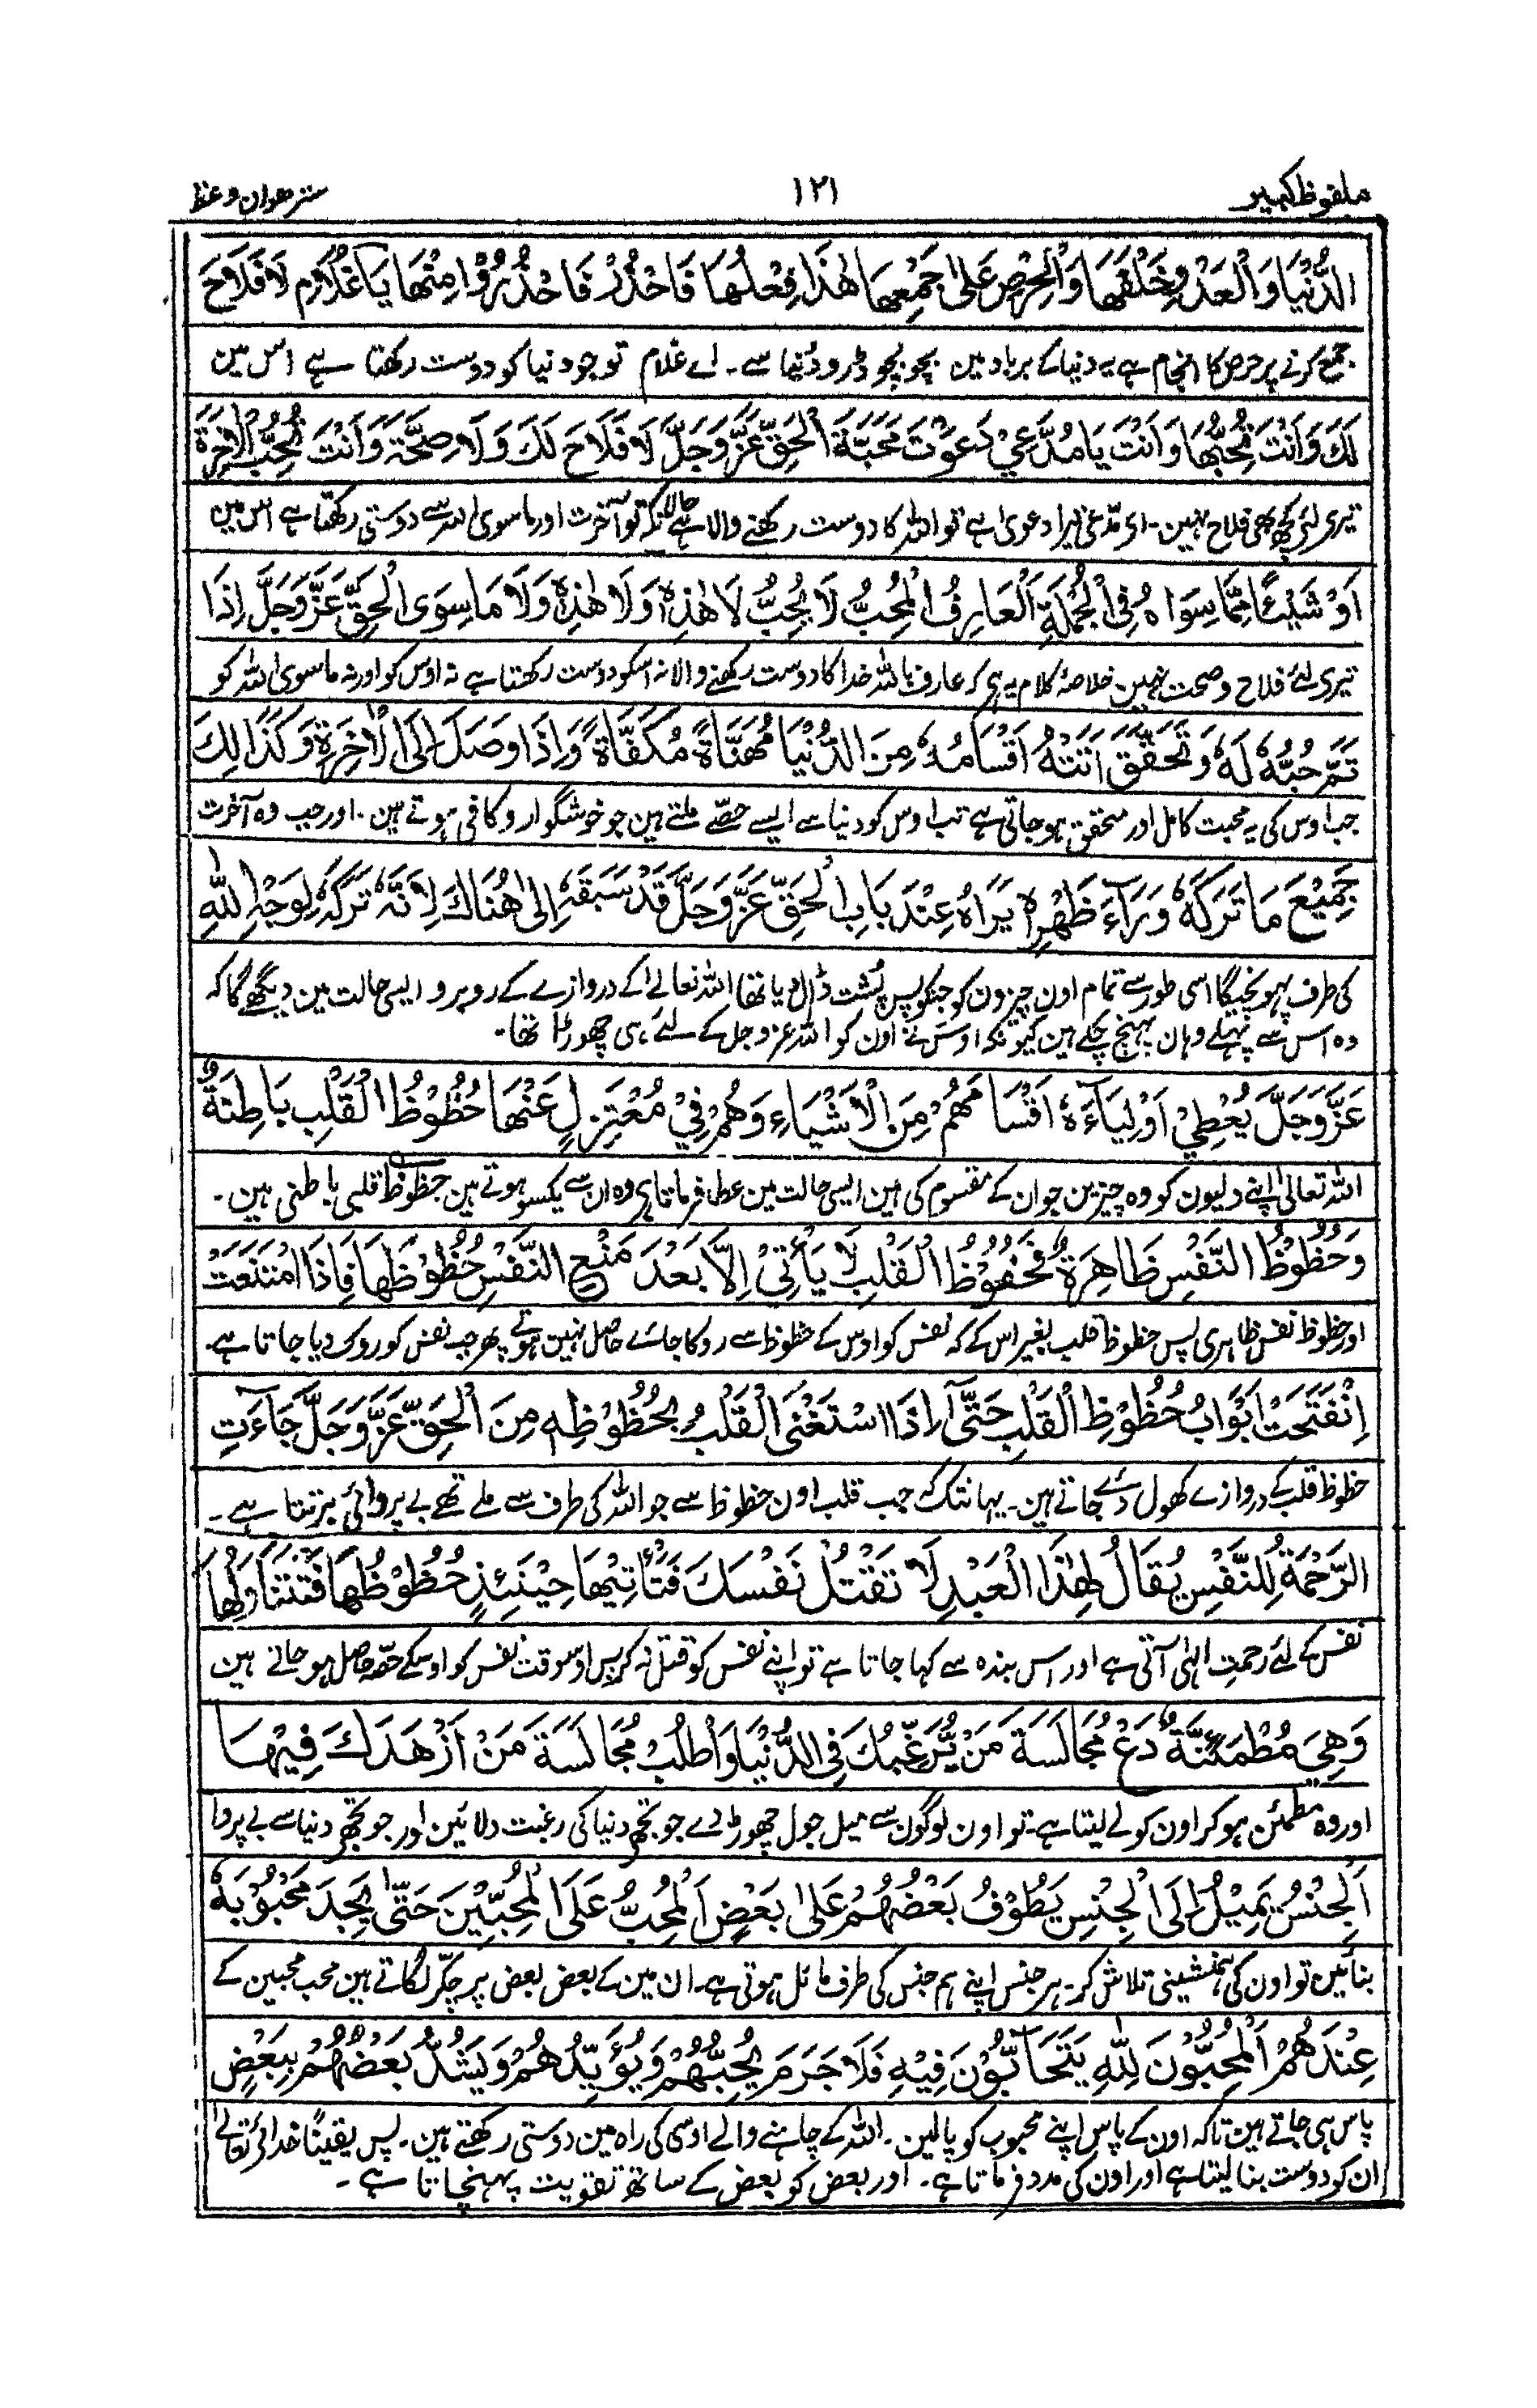 ملفوظ کبیر
۱۲۱
سترھوان وعظ
الدُّنْیَا وَالْعَدْوِ خَلْفَهَا وَالْحِرْصِ عَلیٰ جَمْعِهَا هٰذَا فِعْلُهَا فَاحْذَرْ فَاحْذَرُوْا مِنْهَا یَا غُلَامُ لَا فَلَاحَ
جمع کرنے پر حرص کا انجام ہے یہ دنیا کے برباد مین بچو بچو ڈرو دُنیا سے۔ اے غلام تو جو دنیا کو دوست رکھتا ہے اس مین
لَكَ وَاَنْتَ تُحِبُّهَا وَاَنْتَ یَا مُدَّعِيْ دَعَوْتَ مَحَبَّةَ الْحَقِّ عَزَّوَجَلَّ لَا فَلَاحَ لَكَ وَلَا صِحَّةَ وَاَنْتَ تُحِبُّ الْاٰخِرَةَ
تیری لئی کچھ بھی فلاح نہین۔ ای مدّعی تیرا دعویٰ ہے تو اللہ کا دوست رکھنے والا ہے حالانکہ تو آخرت اور ماسوی اللہ سے دوستی رکھتا ہے اس مین
اَوْ شَیْئًا مِمَّا سِوَاهُ فِی الْجُمْلَةِ اَلْعَارِفُ الْمُحِبُّ لَا یُحِبُّ لَا هٰذِهٖ وَلَا هٰذِهٖ وَلَا مَا سِوَی الْحَقِّ عَزَّوَجَلَّ اِذَا
تیری لئے فلاح وصحت نہین خلاصۂ کلام یہ ہی کہ عارف باللہ خدا کا دوست رکھنے والا نہ اسکو دوست رکھتا ہے نہ اوس کو اور نہ ماسوی اللہ کو
تَمَّ حُبُّهٗ لَهٗ وَتَحَقَّقَ اَتَتْهُ اَقْسَامُهٗ مِنَ الدُّنْیَا مُهَنَّاةً مُكَفَّاةً وَاِذَا وَصَلَ اِلَی الْاٰخِرَةِ وَكَذَالِكَ
جب اوس کی یہ محبت کامل اور متحقق ہو جاتی ہے تب اوس کو دنیا سے ایسے حصّے ملتے ہین جو خوشگوار و کافی ہوتے ہین۔ اور جب وہ آخرت
جَمِیْعَ مَا تَرَكَهٗ وَرَآءَ ظَهْرِهٖ یَرَاهُ عِنْدَ بَابِ الْحَقِّ عَزَّوَجَلَّ قَدْ سَبَقَهٗ اِلیٰ هُنَاكَ لِاَنَّهٗ تَرَكَهٗ لِوَجْهِ اللّٰهِ
کی طرف پہونچیگا اسی طور سے تمام اون چیزون کو جنکو پس پشت ڈال دیا تھا اللہ تعالےٰ کے دروازے کے روبرو ایسی حالت مین دیکھے گا کہ
وہ اس سے پہلے وہان پہنچ چکے ہین کیونکہ اوس نے اون کو اللہ عزوجل کے لئے ہی چھوڑا تھا۔
عَزَّوَجَلَّ یُعْطِيْ اَوْلِیَآءَهٗ اَقْسَامَهُمْ مِنَ الْاَشْیَاءِ وَهُمْ فِيْ مُعْتَزِلٍ عَنْهَا حُظُوْظُ الْقَلْبِ بَاطِنَةٌ
اللہ تعالیٰ اپنے ولیون کو وہ چیزین جو ان کے مقسوم کی ہین ایسی حالت مین عطا فرماتا ہی وہ ان سے یکسو ہوتے ہین حظوظ قلبی باطنی ہین۔
وَحُظُوْظُ النَّفْسِ ظَاهِرَةٌ فَحُظُوْظُ الْقَلْبِ لَا یَأْتِيْ اِلَّا بَعْدَ مَنْعِ النَّفْسِ حُظُوْظَهَا فَاِذَا امْتَنَعَتْ
اور حظوظ نفس ظاہری پس حظوظ قلب بغیر اس کے کہ نفس کو اوس کے حظوظ سے روکا جائے حاصل نہین ہوتے پھر جب نفس کو روک دیا جاتا ہے۔
اِنْفَتَحَتْ اَبْوَابُ حُظُوْظِ الْقَلْبِ حَتّٰی اِذَا اسْتَغْنَی الْقَلْبُ بِحُظُوْظِهٖ مِنَ الْحَقِّ عَزَّوَجَلَّ جَآءَتِ
حظوظ قلب کے دروازے کھول دئے جاتے ہین۔ یہانتک کہ جب قلب اون حظوظ سے جو اللہ کی طرف سے ملے تھے بے پروائی برتتا ہے۔
الرَّحْمَةُ لِلنَّفْسِ یُقَالُ لِهٰذَا الْعَبْدِ لَا تَقْتُلْ نَفْسَكَ فَتَأْتِیْهَا حِیْنَئِذٍ حُظُوْظُهَا فَتَتَنَاوَلُهَا
نفس کے لئے رحمتِ الہٰی آتی ہے اور اس بندہ سے کہا جاتا ہے تو اپنے نفس کو قتل نہ کر پس اوسوقت نفس کو اوسکے حصہ حاصل ہو جاتے ہین
وَهِيَ مُطْمَئِنَّةٌ دَعْ مُجَالَسَةَ مَنْ یُّرَغِّبُكَ فِی الدُّنْیَا وَاطْلُبْ مُجَالَسَةَ مَنْ اَزْهَدَكَ فِیْهَا
اور وہ مطمئن ہو کر اون کو لے لیتا ہے۔ تو اون لوگون سے میل جول چھوڑ دے جو تجھے دنیا کی رغبت دلائین اور جو تجھے دنیا سے بے پروا
اَلْجِنْسُ یَمِیْلُ اِلَی الْجِنْسِ یَطُوْفُ بَعْضُهُمْ عَلیٰ بَعْضٍ اَلْمُحِبُّ عَلَی الْمُحِبِّیْنَ حَتّٰی یَجِدَ مَحْبُوْبَهٗ
بنائین تو اون کی ہمنشینی تلاش کر۔ ہر جنس اپنے ہم جنس کی طرف مائل ہوتی ہے۔ ان مین کے بعض بعض پر چکّر لگاتے ہین محب محبین کے
عِنْدَهُمْ اَلْمُحِبُّوْنَ لِلّٰهِ یَتَحَآبُّوْنَ فِیْهِ فَلَا جَرَمَ یُحِبُّهُمْ وَیُؤَیِّدُهُمْ وَیَشُدُّ بَعْضَهُمْ بِبَعْضٍ
پاس ہی جاتے ہین تاکہ اون کے پاس اپنے محبوب کو پالین۔ اللہ کے چاہنے والے اوسی کی راہ مین دوستی رکھتے ہین۔ پس یقیناً خدائے تعالےٰ
ان کو دوست بنا لیتا ہے اور اون کی مدد فرماتا ہے۔ اور بعض کو بعض کے ساتھ تقویت پہنچاتا ہے۔